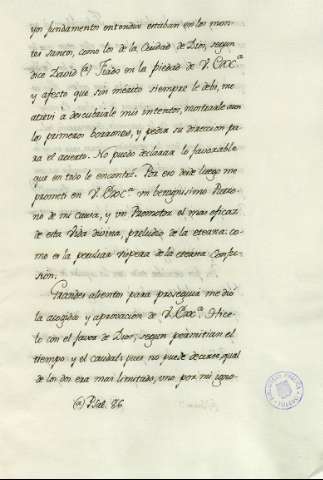 yos fundamentos entendia estaban en los mon-
tes santos, como los de la Ciudad de Dios, segun
dice David (a) Fiado en la piedad de V. Exc.ª
y afecto que sin mérito siempre le debi, me
atrevi à descubrirle mis intentos, mostrarle aun
los primeros borrones, y pedir su direccion pa-
ra el acierto. No puedo declarar lo favorable
que en todo le encontré. Por eso desde luego me
prometi en V. Exc.ª un benignisimo Patro-
no de mi causa, y un Promotor el mas eficaz
de esta Vida divina, preludio de la eterna: co-
mo es la peculiar vispera de la eterna Confu-
sion.
Grandes alientos para proseguir me dió
la acogida y aprovacion de V. Exc.ª Hice-
lo con el favor de Dios, segun permitian el
tiempo y el caudal: pues no puede decirse, qual
de los dos era mas limitado, uno por mi igno-
(a) Psal. 86